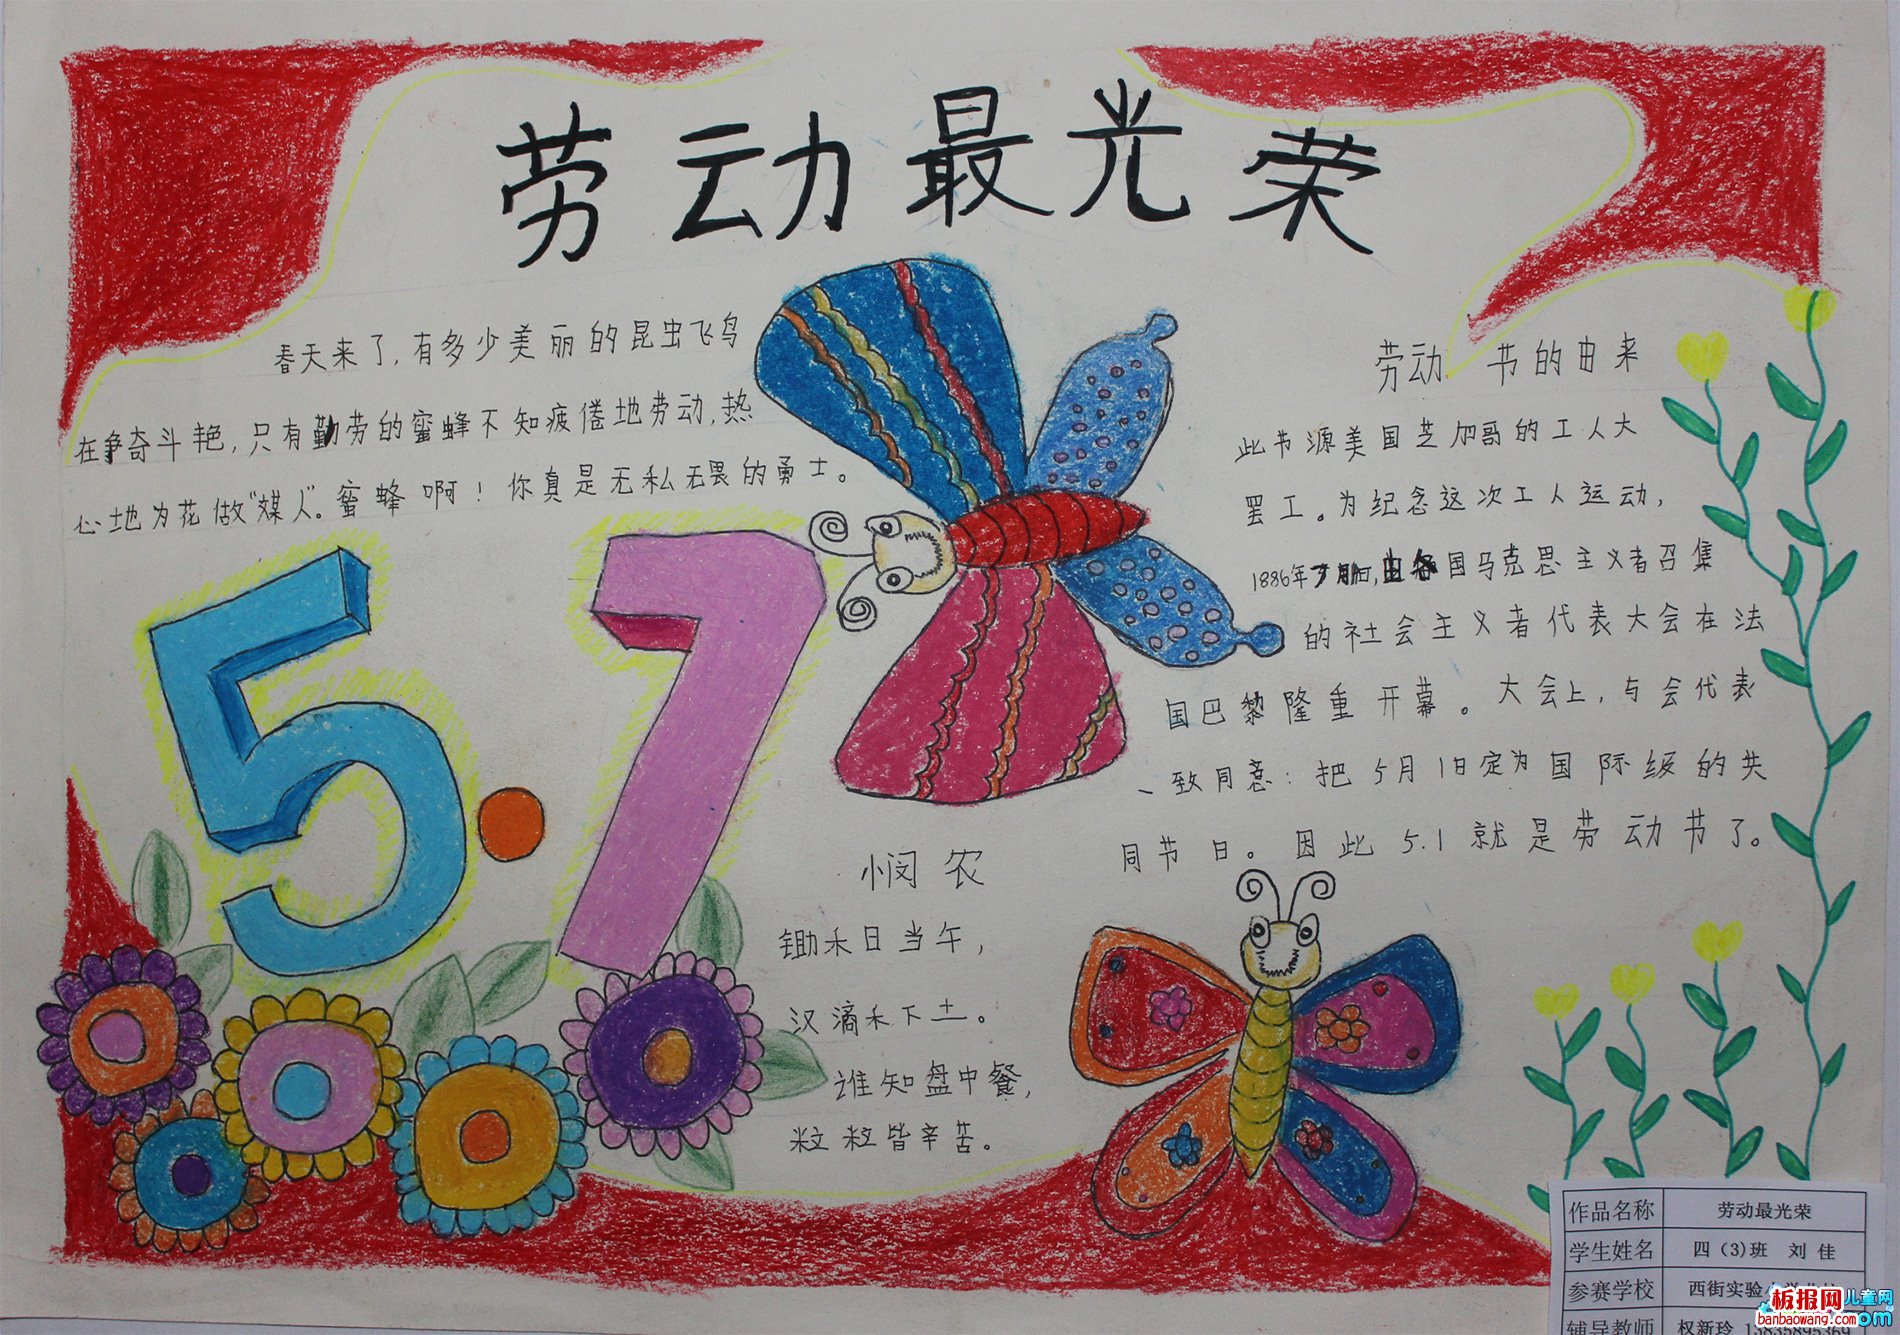 劳动最光荣
春天来了,有多少美丽的昆虫飞鸟
在争奇斗艳,只有勤劳的蜜蜂不知疲倦地劳动,热
心地为花做“媒人”。蜜蜂啊!你真是无私无畏的勇士。
5·1
劳动节的由来
此节源美国芝加哥的工人大
罢工。为纪念这次工人运动,
1886年 国马克思主义者召集
的社会主义者代表大会在法
国巴黎隆重开幕。大会上,与会代表
一致同意:把5月1日定为国际级的共
同节日。因此5.1就是劳动节了。
悯农
锄禾日当午,
汉滴禾下土。
谁知盘中餐,
粒粒皆辛苦。
作品名称 劳动最光荣
学生姓名 四(3)班 刘佳
参赛学校 西街实验
辅导教师 权新玲
板报网 儿童网
banbaowang.com